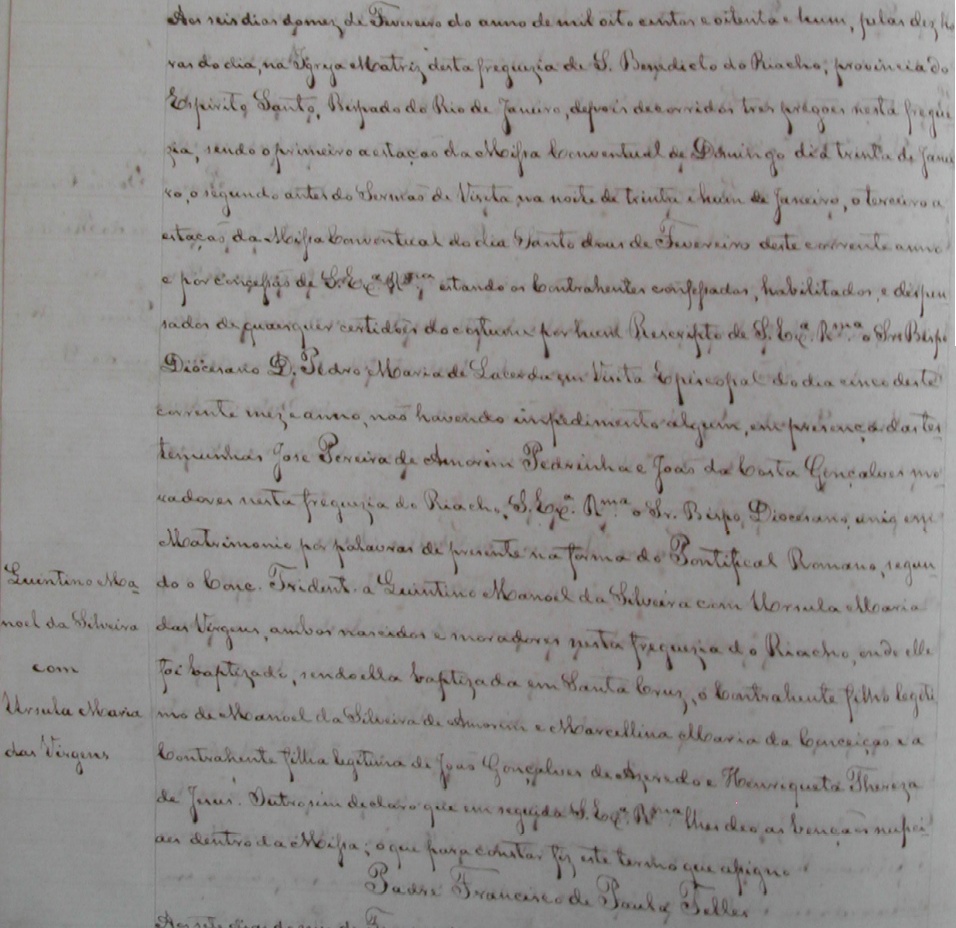 Aos seis dias do mez de Fevereiro do anno de mil oito centos e oitenta e hum, pelas dez ho
ras do dia, na Igreja Matriz desta freguezia de S. Benedicto do Riacho, provincia do
Espirito Santo, Bispado do Rio de Janeiro, depois de corridos tres pregoes nesta fregue
zia, sendo o primeiro a estação da Missa Conventual de Domingo dia trinta de Janei
ro, o segundo antes do Sermão de Visita na noite de trinta e hum de Janeiro, o terceiro a
estação da Missa Conventual do dia Santo dous de Fevereiro deste corrente anno
e por concessão de S. Exª. Rmª. estando os Contrahentes confessados, habilitados, e dispen
sados de quaesquer certidões do costume por hum Rescripto de S. Exª. Rmª. o Snr Bispo
Diocesano D. Pedro Maria de Lacerda em Visita Episcopal do dia cinco deste
corrente mez e anno, não havendo impedimento algum, em presença das tes
temunhas Jose Pereira de Amorim Pedrinha e João da Costa Gonçalves mo
radores nesta freguezia do Riacho, S. Exª. Rmª. o Sr. Bispo Diocesano, unio em
Matrimonio por palavras de presente na forma do Pontifical Romano, segun
do o Conc. Trident. a Quintino Manoel da Silveira com Ursula Maria
das Virgens, ambos nascidos e moradores nesta freguezia do Riacho, onde elle
foi baptizado, sendo ella baptizada em Santa Cruz, o Contrahente filho legiti
mo de Manoel da Silveira de Amorim e Marcellina Maria da Conceição e a
Contrahente filha legitima de João Gonçalves de Azeredo e Henriqueta Thereza
de Jesus. Outrosim declaro que em seguida S. Exª. Rmª. lhes deo as bençãos nupci
aes dentro da Missa; o que para constar fiz este termo que assigno.
Padre Francisco de Paula Telles
Quintino Ma
noel da Silveira
com
Ursula Maria
das Virgens